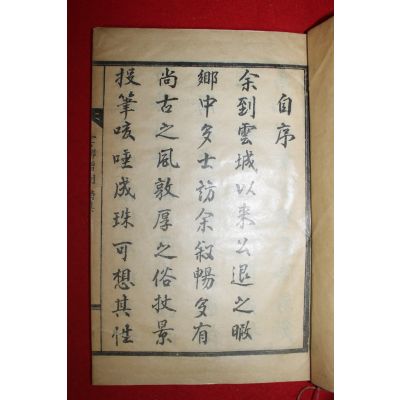 自序
余到雲城以来公退之暇
鄉中多士訪余敘暢多有
尚古之風敦厚之俗技景
投筆咳唾成珠可想其性